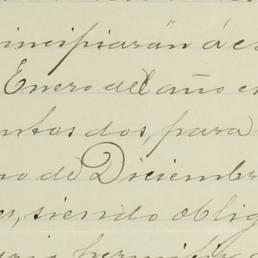 rincipiarán á c
Enero del año c
ntos dos, para
no de Diciembr
s, siendo oblig